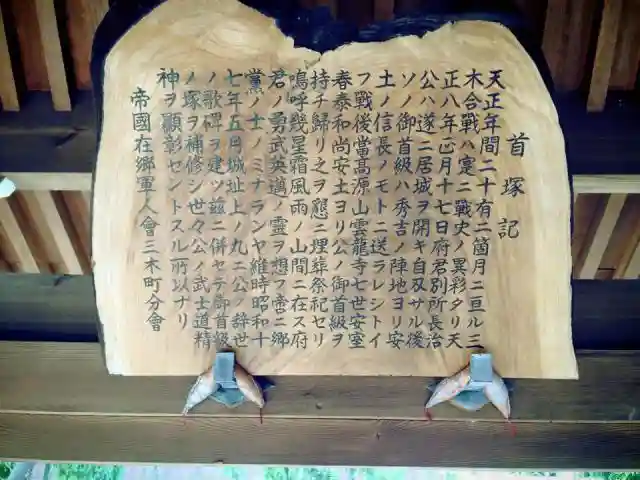 首塚記
天正年間二十有二箇月ニ亘ル三
木合戰ハ寔ニ戰史ノ異彩タリ天
正八年正月十七日府君別所長治
公ハ遂ニ居城ヲ開キ自刃サル後
ソノ御首級ハ秀吉ノ陣地ヨリ安
土ノ信長ノモトニ送ラレシトイ
フ戰後當高源山雲龍寺七世安室
春泰和尚安土ヨリ公ノ御首級ヲ
持チ歸リ之ヲ懇ニ埋葬祭祀セリ
嗚呼幾星霜風雨ノ山間ニ在ス府
君ノ勇武英邁ノ靈ヲ想フ啻ニ郷
黨ノ士ノミナランヤ維時昭和十
七年五月城址上ノ丸ニ公ノ辞世
ノ歌碑ヲ建ツ茲ニ併セテ御首級
ノ塚ヲ補修シ世々公ノ武士道精
神ヲ顯彰セントスル所以ナリ
帝國在郷軍人會三木町分會